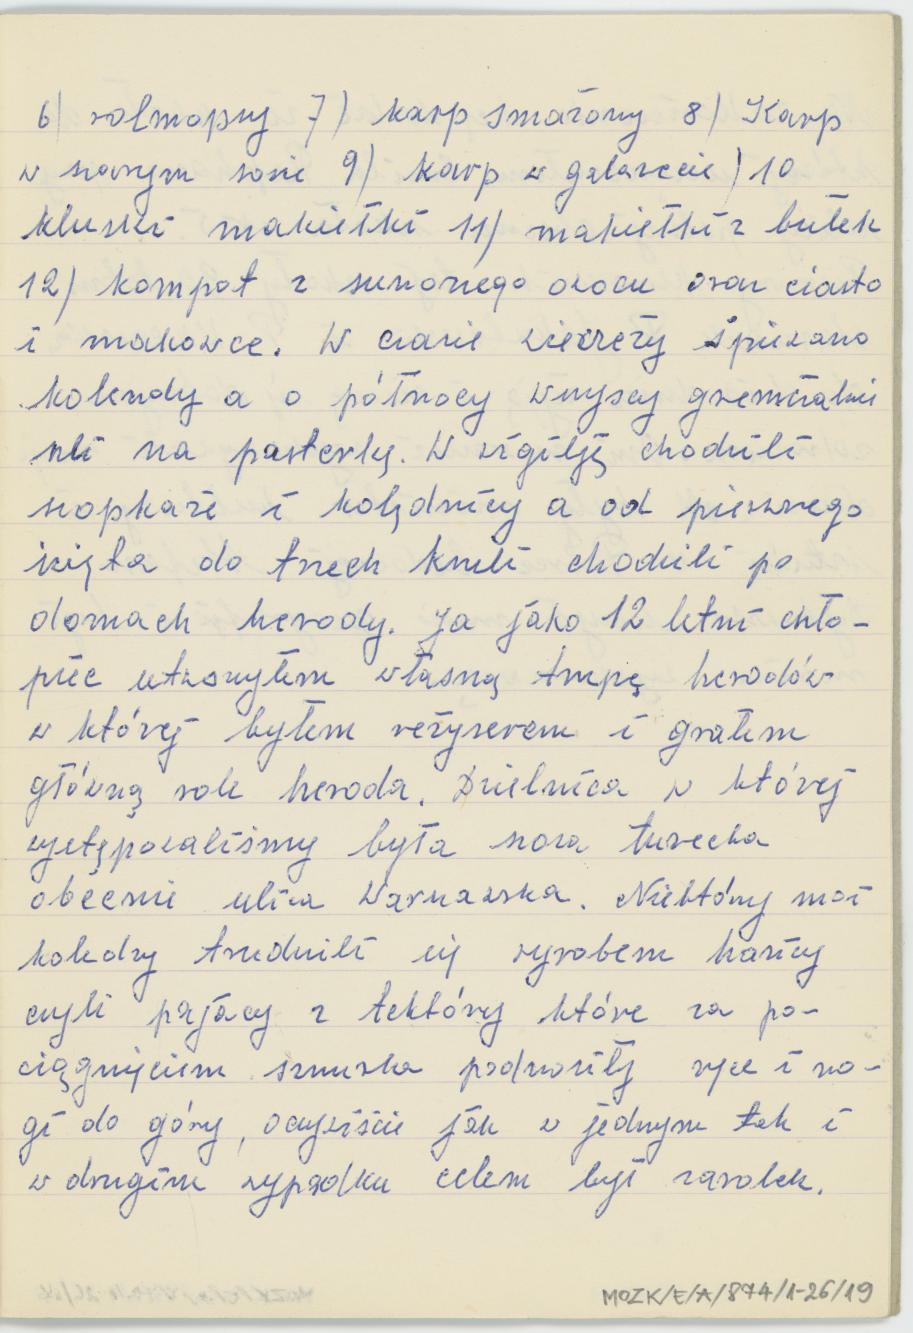 6) rolmopsy 7) karp smażony 8) Karp
w szarym sosie 9) karp w galarecie) 10
kluski makiełki 11) makiełki z bułek
12) kompot z suszonego owocu oraz ciasto
i makowce. W czasie wieczerzy śpiewano
kolendy a o północy wszyscy gremialnie
szli na pasterkę. W wigilję chodzili
szopkaże i kolędnicy a od pierwszego
święta do trzech króli chodzili po
domach herody. Ja jako 12 letni chło-
piec utworzyłem własną trupę herodów
w której byłem reżyserem i grałem
główną role heroda. Dzielnica w której
występowaliśmy była szosa turecka
obecnie ulica Warszawska. Niektórzy moi
koledzy trudnili się wyrobem
czyli pajacy z tektóry które za po-
ciągnięciem sznurka podnosiły ręce i no-
gi do góry, oczywiście jak w jednym tak i
w drugim wypadku celem był zarobek.
MOZK/E/A/874/1-26/19